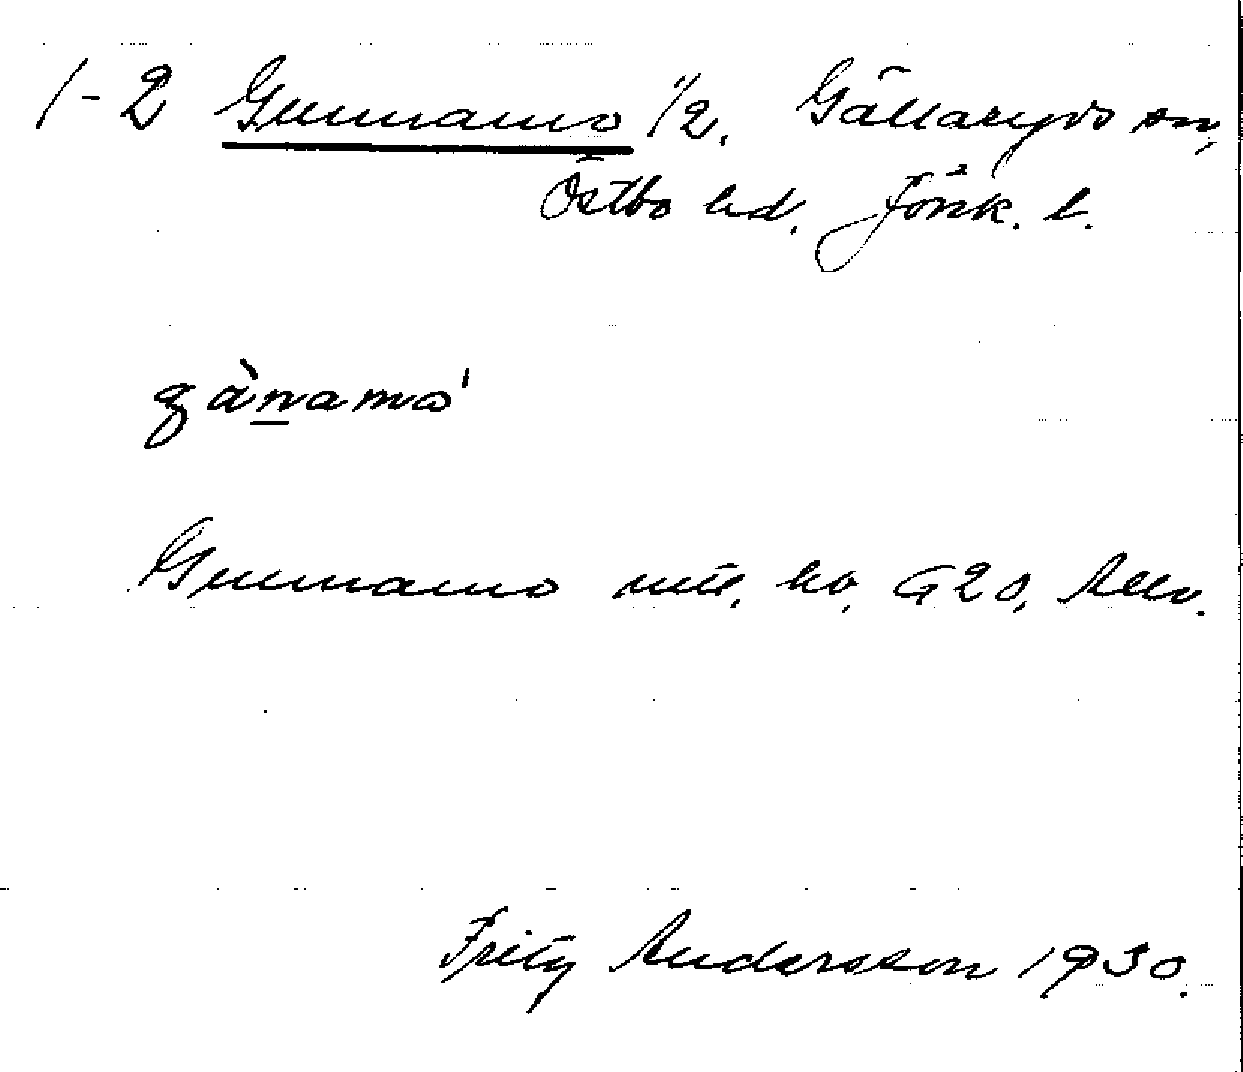 1-2 Gunnamo 1/2. Gällaryds sn,
Östbo hd. Jönk. l.
gànamo'
Gunnamo G 20,
Fritz Andersson 1930.